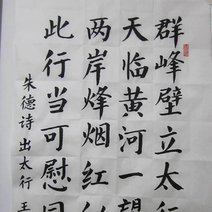 群峰壁立太行
天临黄河一望
两岸烽烟红
此行当可慰同
朱德诗 出太行 王